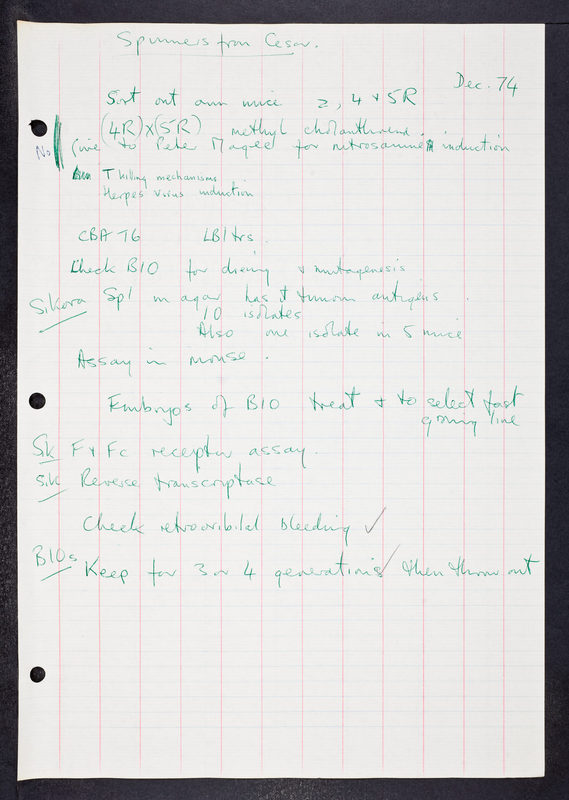 Spinners from Cesar.
Dec. 74
Sort out own mice 2, 4 + 5R
(4R)x(5R) methyl cholanthrene.
No Give to Pete Magee for nitrosamine induction
T killing mechanisms
Herpes virus induction
CBA T6 LBltrs.
Check B10 for dieing + mutagenesis
Sikora Sp1 in agar has + tumour antigens.
10 isolates
Also one isolate in 5 mice
Assay in mouse.
Embryos of B10 treat + to select fast
growing line
Sk F + Fc receptor assay.
Sik Reverse transcriptase
Check retroorbital bleeding ✓
B10s Keep for 3 or 4 generations ✓ then throw out